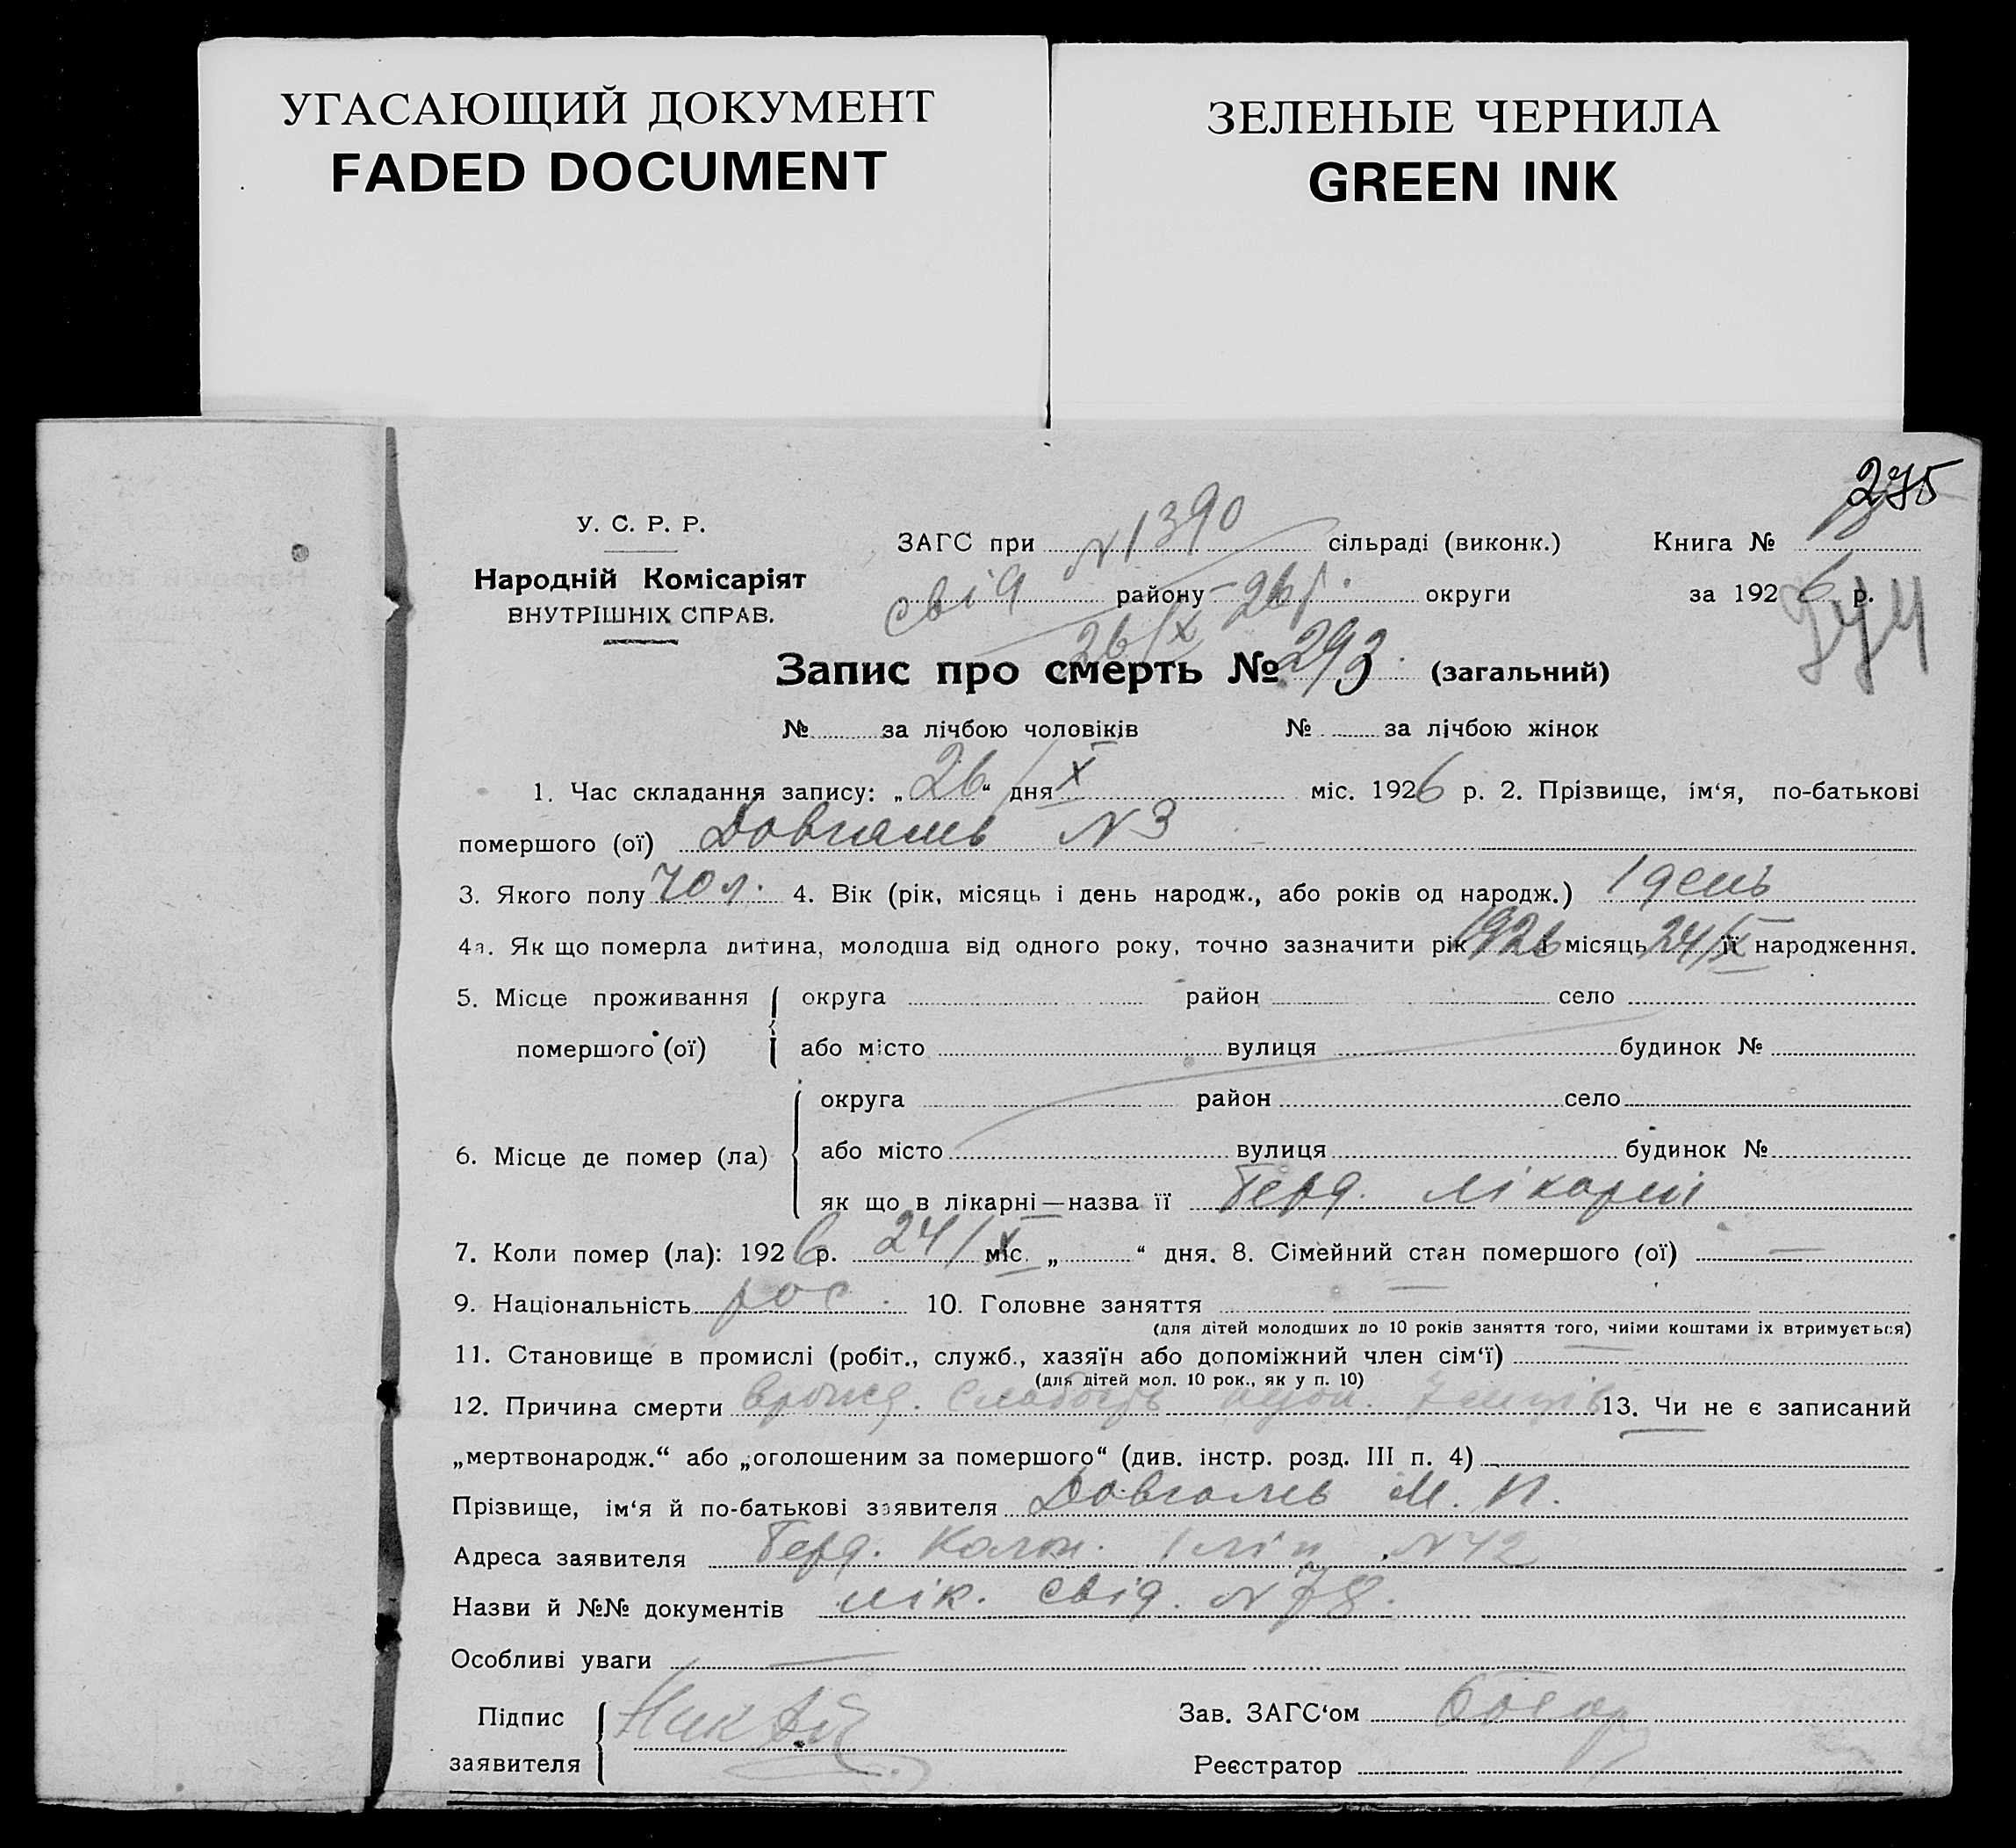 УГАСАЮЩИЙ ДОКУМЕНТ
FADED DOCUMENT
ЗЕЛЕНЫЕ ЧЕРНИЛА
GREEN INK
275
У. С. Р. Р.
Народній Комісаріят
ВНУТРІШНІХ СПРАВ.
ЗАГС при N 1390 сільраді (виконк.)
свід району 26 р. округи
26/X
Книга №
за 1926 р.
Запис про смерть № 293. (загальний)
№ за лічбою чоловіків № за лічбою жінок
1. Час складання запису: „26“ дня X міс. 1926 р. 2. Прізвище, ім‘я, по-батькові
помершого (ої) Довгаль N 3
3. Якого полу чол. 4. Вік (рік, місяць і день народж., або років од народж.) 1 день
4а. Як що померла дитина, молодша від одного року, точно зазначити рік 1926 і місяць 24/X її народження.
5. Місце проживання помершого (ої) округа район село
або місто вулиця будинок №
6. Місце де помер (ла) округа район село
або місто вулиця будинок №
як що в лікарні—назва її Герд. лікарні
7. Коли помер (ла): 1926 р. 24/X міс. „ “ дня. 8. Сімейний стан помершого (ої) —
9. Національність рос. 10. Головне заняття —
(для дітей молодших до 10 років заняття того, чиїми коштами їх втримується)
11. Становище в промислі (робіт., служб., хазяїн або допоміжний член сім‘ї) —
(для дітей мол. 10 рок., як у п. 10)
12. Причина смерти врожд. слабость 13. Чи не є записаний
„мертвонародж.“ або „оголошеним за помершого“ (див. інстр. розд. III п. 4)
Прізвище, ім‘я й по-батькові заявителя Довгаль М. П.
Адреса заявителя Герд. Колон. 1 лін N 42
Назви й №№ документів лік. свід. N 78.
Особливі уваги —
Підпис заявителя
Зав. ЗАГС‘ом
Реєстратор